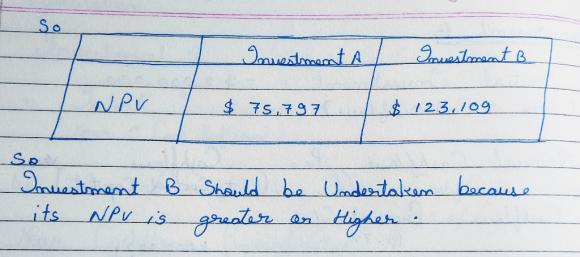 So
Investment A Investment B
NPV $ 75,797 $ 123,109
So
Investment B Should be Undertaken because
its NPV is greater or Higher.